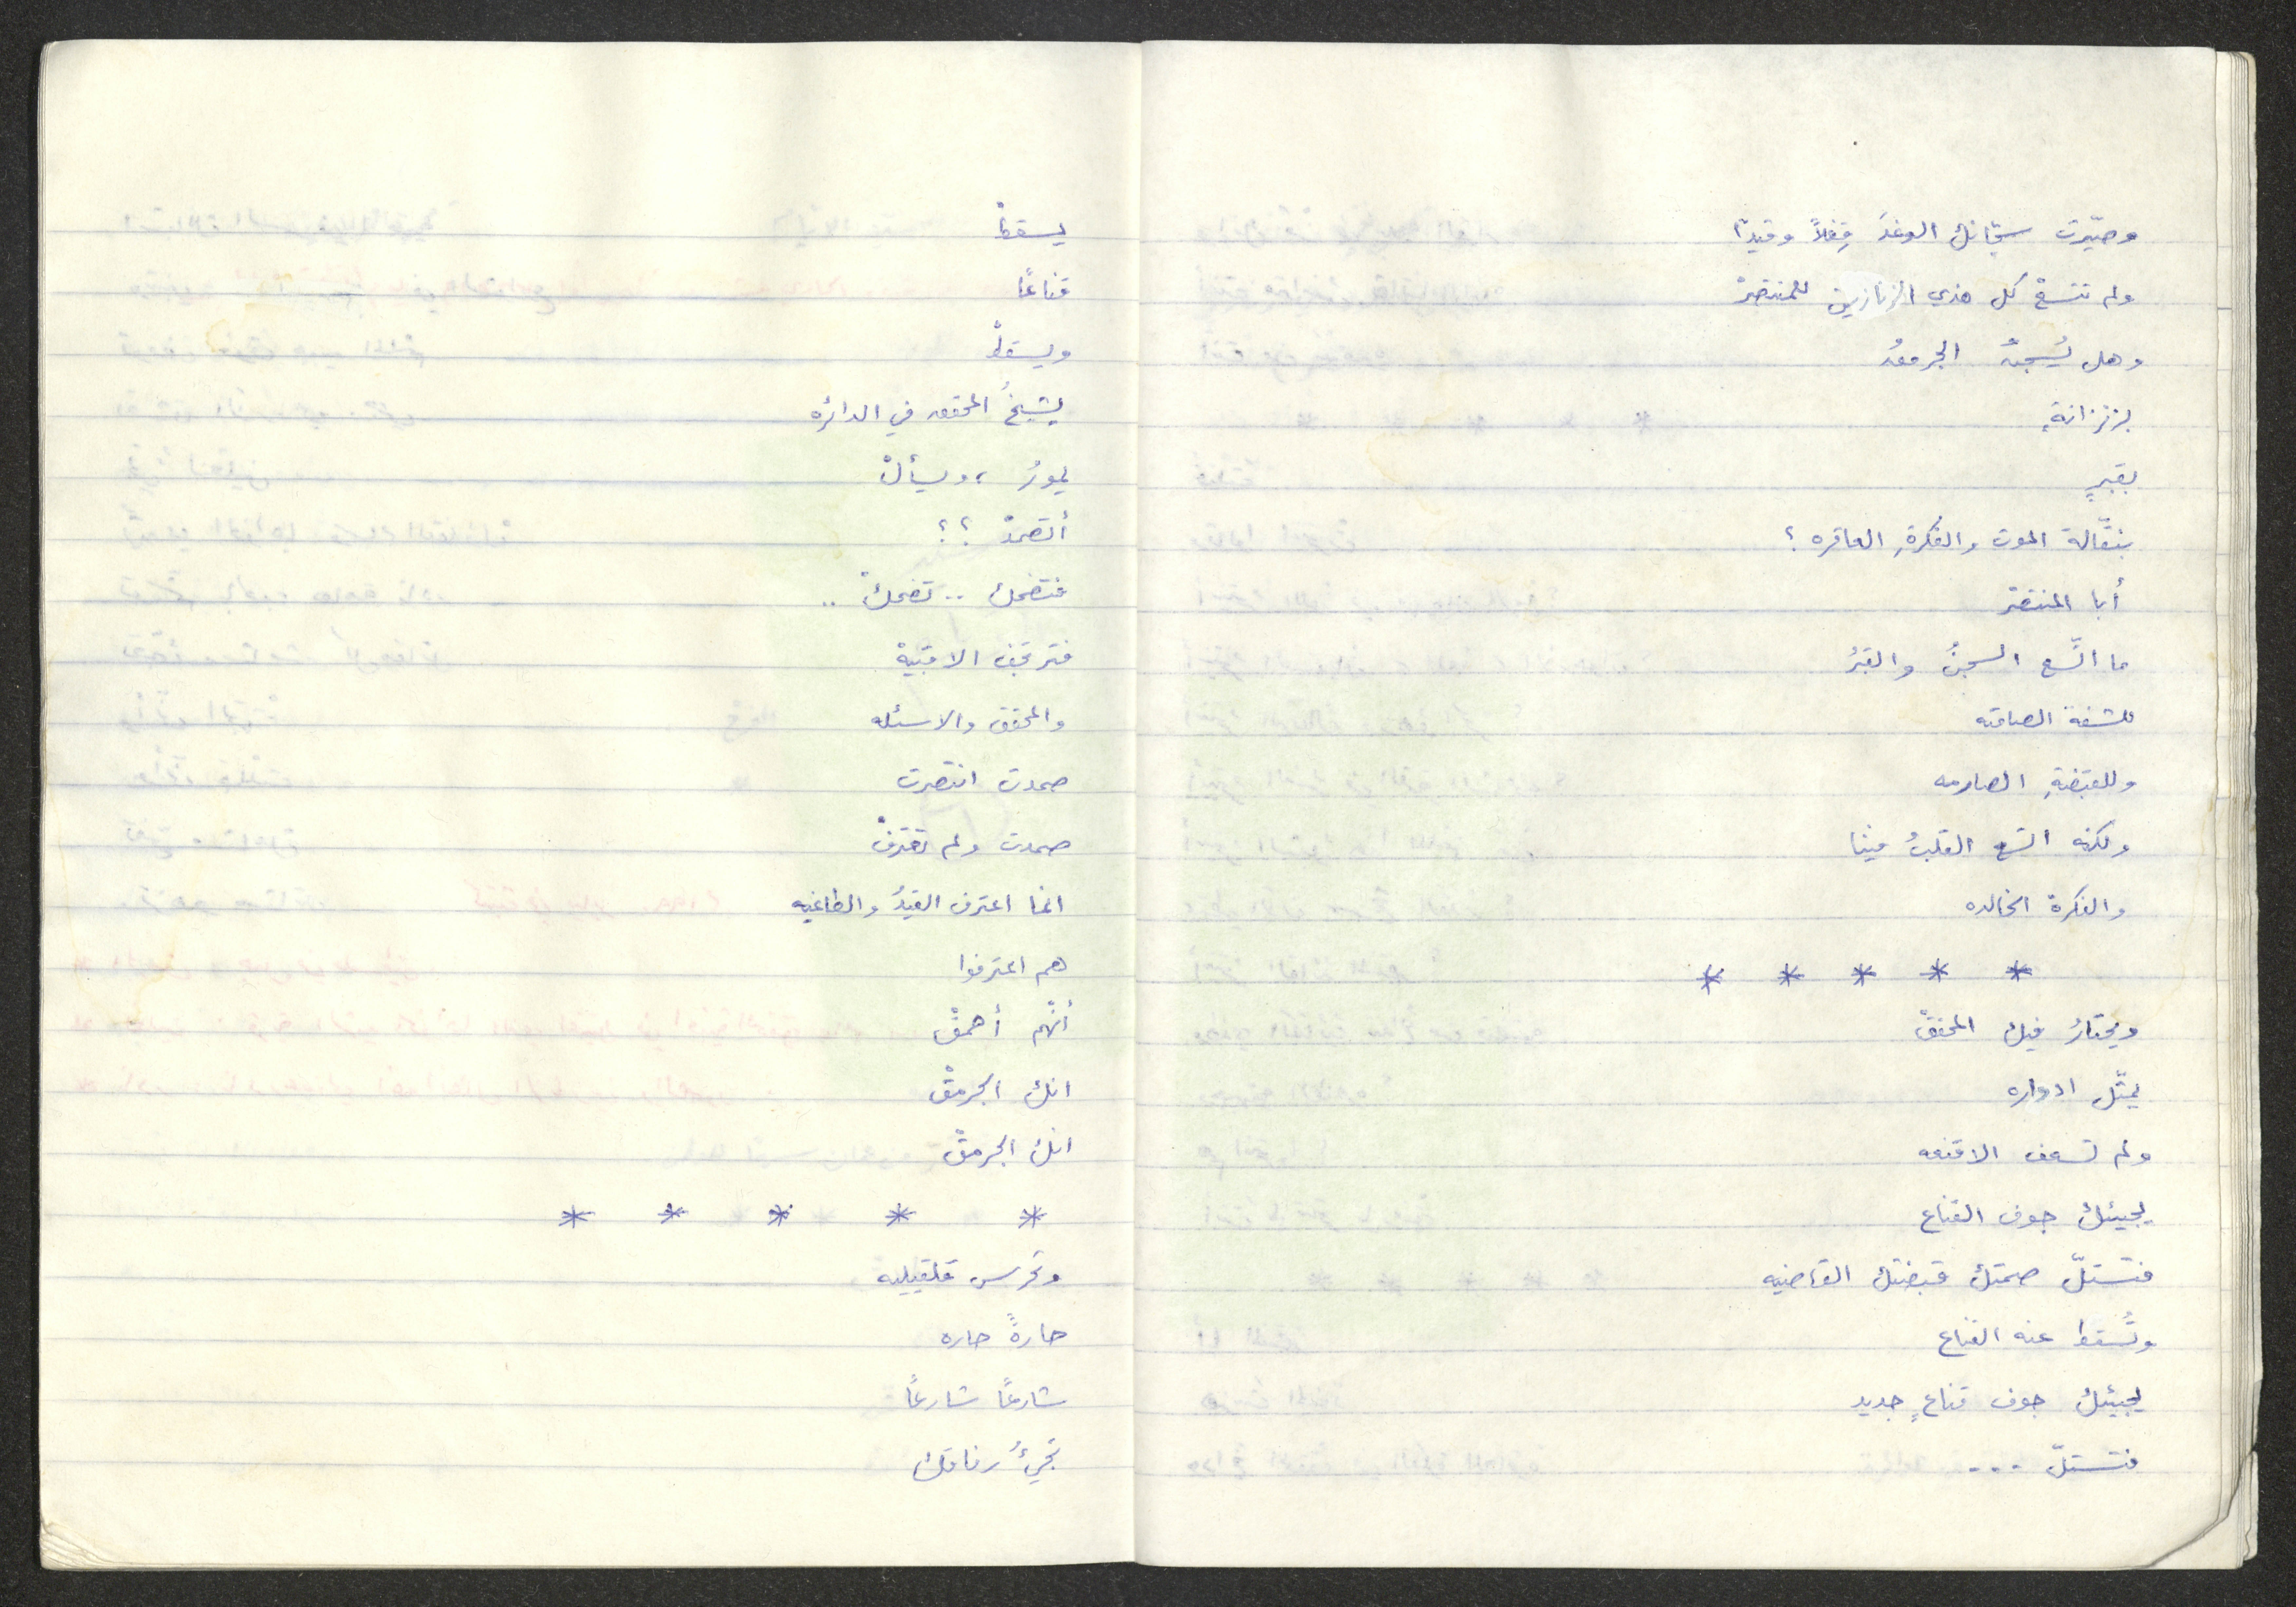 وصيّرت سجّانك الوغدَ قِفلاً وقيدًا
ولم تتسعْ كل هذي الزنازين للمنتصرْ
وهل يُسجنُ الجرمقُ
بزنزانةٍ
بقبرٍ
بنقّالة الموت والفكرةِ العاقره ؟
أبا المنتصر
ما اتَّسع السجنُ والقبرُ
للشفة الصامته
وللقبضةِ الصارمه
ولكنه اتسع القلبُ فينا
والفكرة الخالده
* * * * *
ويحتارُ فيك المحققْ
يمثّل ادواره
ولم تسعف الاقنعه
يجيئك جوف القناع
فتستلّ صمتك قبضتك القاضيه
وتُسقط عنه القناع
يجيئك جوف قناعٍ جديد
فتستلّ ...
يسقطْ
قناعًا
ويسقطْ
يشبحُ المحقق في الدائره
يدورُ ، ويسألْ
أتصمدْ ؟؟
فتضحك .. تضحكْ ..
فترتجف الاقبيةْ
والمحقق والاسئله
صمدت انتصرت
صمدت ولم تعترفْ
انما اعترف القيدُ والطاغيه
هم اعترفوا
أنّهم أحمقْ
انك الجرمقْ
انك الجرمقْ
* * * * *
وتحرس قلقيليه
حارةً حاره
شارعًا شارعًا
تجيءُ رفاقك